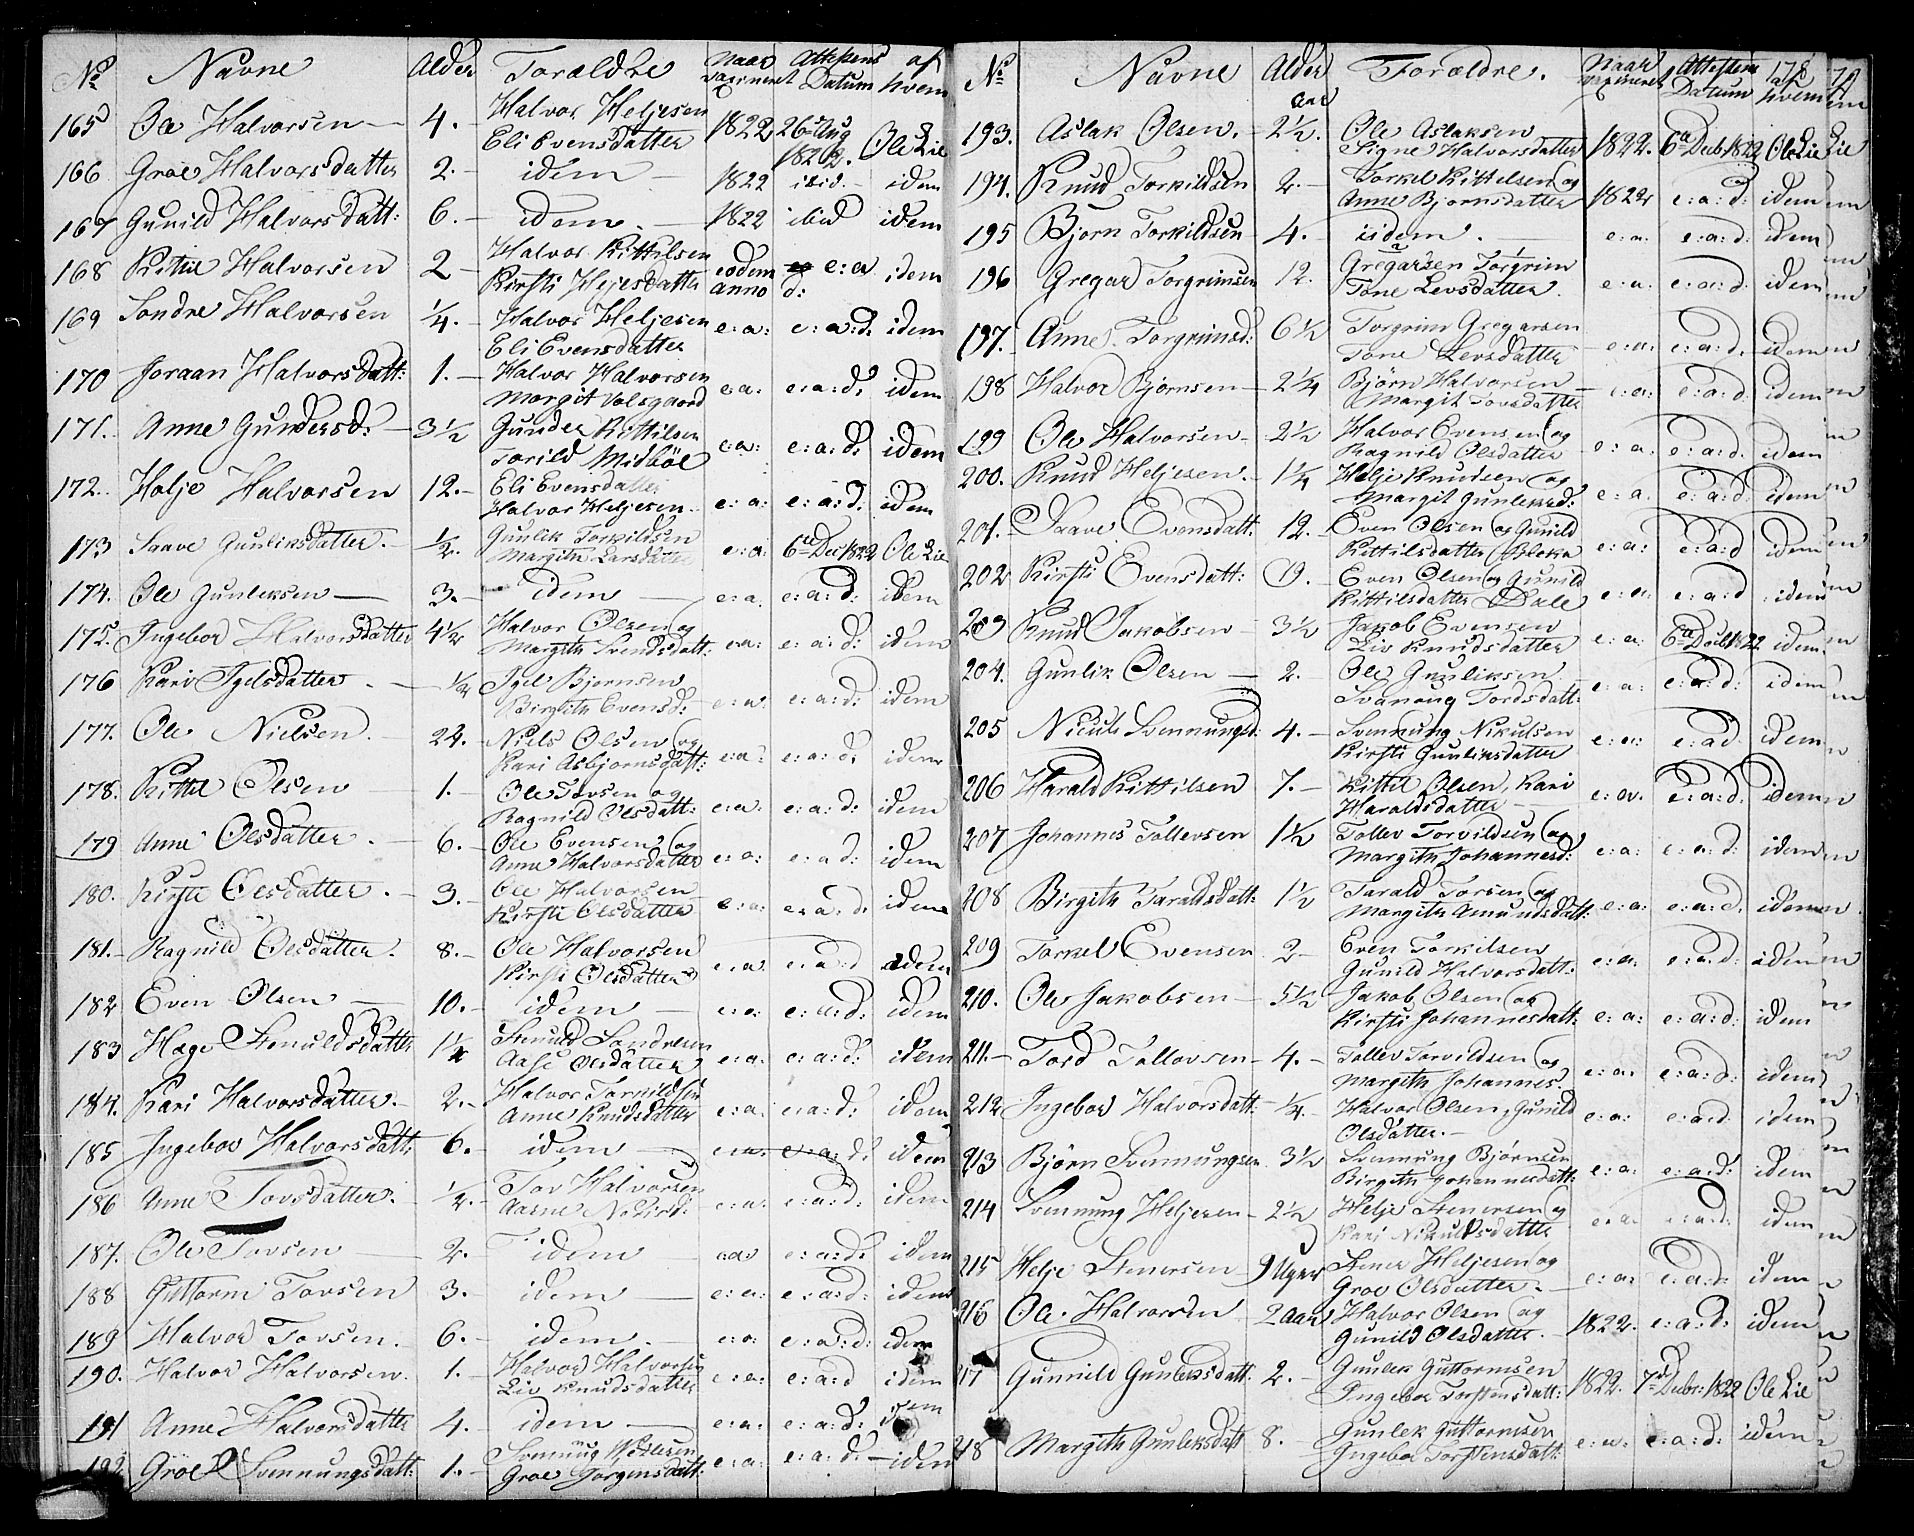 No Navne Alder Forældre Naar vaxineret Attestens Datum af hvem
165 Ole Halvorsen — 4. Halvor Heljesen 1822 26 Aug 1822. Ole Lie
Eli Evensdatter
166 Groe Halvorsdatter 2. idem 1822 ibid. idem
167 Gunild Halvorsdatt: 6. idem. 1822 ibid idem
168 Kittil Halvorsen 2 Halvor Kittilsen eodem anno e: a d: idem
Kirsti Hejesdatter
169 Sondre Halvorsen 1/4. Halvor Heljesen e: a: e: a: d: idem
Eli Evensdatter
170 Joraan Halvorsdatt: 1. Halvor Halvorsen e: a: e: a: d: idem
Margit Valsgaard
171. Anne Gundersd: 3 1/2 Gunder Kittilsen e: a: e: a: d: idem
Torild Midböe
172. Holje Halvorsen 12. Eli Evensdatter e: a: e: a: d: idem
Halvor Heljesen
173 Saave Gunliksdatter. 1/2. Gunlik Torkildsen e: a: 6te Dec 1822 Ole Lie
Margith Larsdatter
174. Ole Gunleksen — 3. idem — e: a. e: a: d: idem
175. Ingebor Halvorsdatter 4 1/2 Halvor Olsen og e: a: e: a: d: idem
Margith Svendsdatt:
176 Kari Igelsdatter. 1/2 Igel Bjornsen e: a: e: a: d: idem
Birgith Evensd:
177. Ole Nielsen. 24. Niels Olsen og e: a: e: a: d: idem
Kari Asbjornsdatt:
178. Kittil Olsen 1. Ole Tovsen og e: a: e: a: d: idem
Ragnild Olsdatt:
179 Anne Olsdatter. 6. Ole Evensen og e: a: e: a d: idem
Anne Halvorsdatter
180. Kirsti Olsdatter. 3. Ole Halvorsen e: a: e: a: d: idem
Kirsti Olsdatter
181. Ragnild Olsdatter. 8. Ole Halvorsen e: a e: a: d idem
Kirsti Olsdatter
182 Even Olsen — 10. idem — e: a: e: a: d: idem
183 Hæge Stenuldsdatter 1 1/2 Stenuld Sondresen e: a: e: a: d: idem
Aase Olsdatter
184. Kari Halvorsdatter. 2. Halvor Torkildsen e: a: e: a: d: idem
Anne Knudsdatter
185 Ingebor Halvorsdatt: 6. idem — e: a: e: a: d: idem
186 Anne Tovsdatter. 1/2. Tov Halvorsen e: a: e: a: d: idem
Aasne
187. Ole Tovsen 2. idem e: a: e: a: d: idem
188 Guttorm Tovsen 3. idem — e: a: e: a: d: idem
189 Halvor Tovsen. 6. idem. e: a: e: a: d: idem
190. Halvor Halvorsen. 1. Halvor Halvorsen e: a: e: a: d idem
Liv Knudsdatter
191 Anne Halvorsdatter 4. idem — e: a: e: a: d: idem
192 Groe Svennungsdatt: 1. Svennung e: a: e: a: d. idem
Groe Jorgensdatt:
No Navne Alder Forældre. Naar vaxineret Attestens Datum af hvem 178
Aar
193. Aslak Olsen. 2 1/2. Ole Aslaksen 1822. 6te Decb 1822 Ole Lie
Signe Halvorsdatter
194. Knud Torkildsen 2. Torkel Kittelsen og 1822 e: a: d: idem
Anne Bjornsdatter
195 Bjorn Torkildsen 4. iidem. e: a. e: a: d: idem
196 Gregar Torgrimsen 12. Gregarsen Torgrim e: a. e: a: d: idem
Tone Levsdatter.
197. Anne Torgrimsd: 6 1/2 Torgrim Gregarsen e: a: e: a: d. idem
Tone Levsdatter
198 Halvor Bjornsen 2 1/4 Björn Halvorsen e: a: e: a: d. idem
Margit Tovsdatter
199 Ole Halvorsen 2 1/2 Halvor Evensen og e: a: e: a: d. idem
Ragnild Olsdatter
200. Knud Heljesen. 1 1/4 Helje Knudsen og e: a. e: a: d: idem
Margit Gunleksd:
201. Saave Evensdatt: 12. Even Olsen og Gunild e: a: e: a: d idem
Kittilsdatter Bloka
202 Kirsti Evensdatt: 19. Even Olsen og Gunild e: a: e: a: d idem
Kittilsdatter Dale
203 Knud Jakobsen 3 1/2 Jakob Evensen e: a: 6te Decb 1822 idem
Liv Knudsdatter
204. Gunlik Olsen — 2. Ole Gunliksen e: a: e: a: d: idem
Svanaug Tordsdatt:
205 Niculs Svennungs: 4. Svennung Nikulsen e: a: e: a: d. idem
Kirsti Gunliksdatter
206 Harald Kittilsen 7. Kittil Olsen, Kari e: a. e: a: d: idem
Haraldsdatter —
207 Johannes Tollevsen 1 1/2 Tollev Torvildsen og e: a: e: a: d: idem
Margith Johannesd:
208 Birgith Taraldsdatt: 1 1/2 Tarald Torsen og e: a: e: a: d. idem
Margith Amundsdatt:
209 Torkel Evensen 2 Even Torkilsen e: a: e: a: d: idem
Gunild Halvorsdatt:
210. Ole Jakobsen — 5 1/2 Jakob Olsen og e: a: e: a: d: idem
Kirsti Johannesdatt:
211. Tord Tollovsen 4. Tollev Torvildsen og e: a: e: a: d: idem
Margith Johannes.
212 Ingebor Halvorsdatt: 1/4. Halvor Olsen, Gunild e: a: e: a: d idem
Olsdatter.
213 Björn Svennungsen 3 1/2 Svennung Björnsen e: a: e: a: d: idem
Birgith Johannesdatt:
214 Svennung Heljesen 2 1/2 Helje Stenersen og e: a: e: a: d: idem
Kari Nikuldsdatter
215 Helje Stenersen 9 Uger Stener Heljesen og e: a: e: a: d: idem
Groe Olsdatter.
216 Ole Halvorsen 2 Aar Halvor Olsen og 1822. e: a: d: idem
Gunild Olsdatter.
217 Gunnild Gunleksdatt: 2. Gunlek Guttormsen 1822. 7de Decbr: 1822 Ole Lie
Ingebor Torstensdatt:
218 Margith Gunleksdatt 8. Gunlek Guttormsen e: a: e: a: d: idem
Ingebor Torstensdatt: